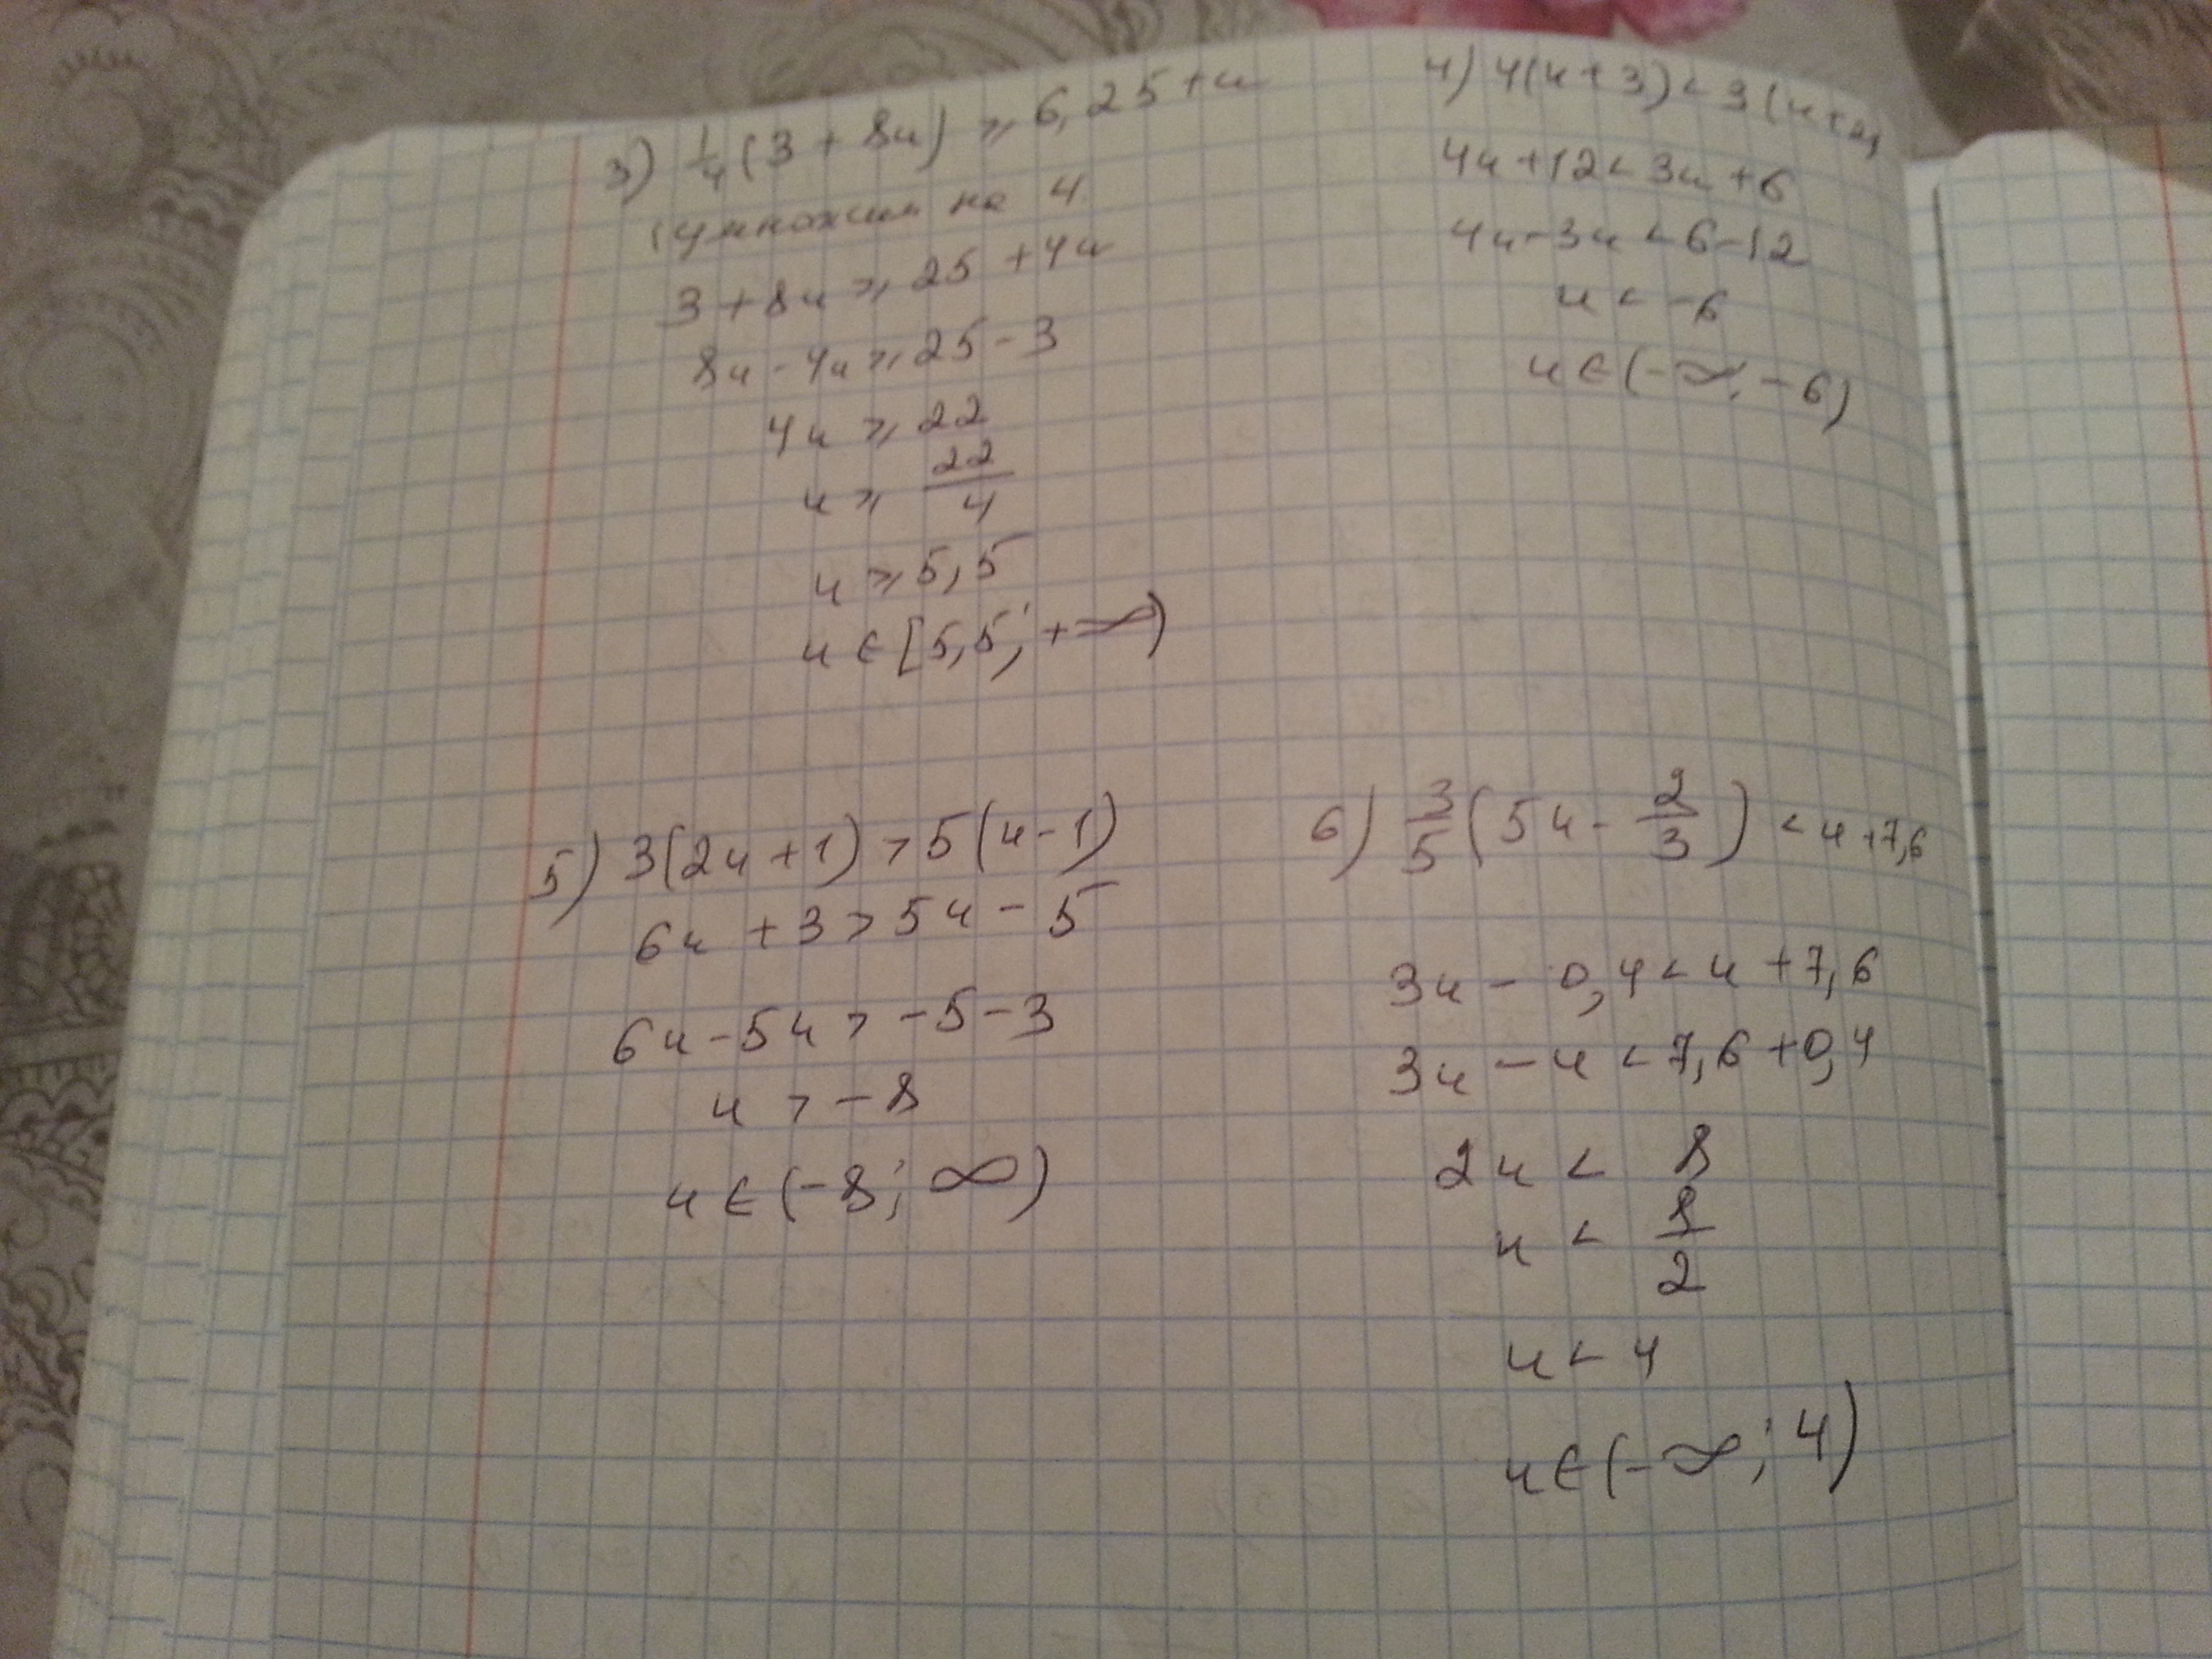 3) 1/4 (3 + 8u) ⩾ 6,25 + u
(умножим на 4
3 + 8u ⩾ 25 + 4u
8u - 4u ⩾ 25 - 3
4u ⩾ 22
u ⩾ 22/4
u ⩾ 5,5
u ∈ [5,5; +∞)
4) 4(u + 3) < 3(u + 2)
4u + 12 < 3u + 6
4u - 3u < 6 - 12
u < -6
u ∈ (-∞; -6)
5) 3(2u + 1) > 5(u - 1)
6u + 3 > 5u - 5
6u - 5u > -5 - 3
u > -8
u ∈ (-8; ∞)
6) 3/5 (5u - 2/3) < u + 7,6
3u - 0,4 < u + 7,6
3u - u < 7,6 + 0,4
2u < 8
u < 8/2
u < 4
u ∈ (-∞; 4)